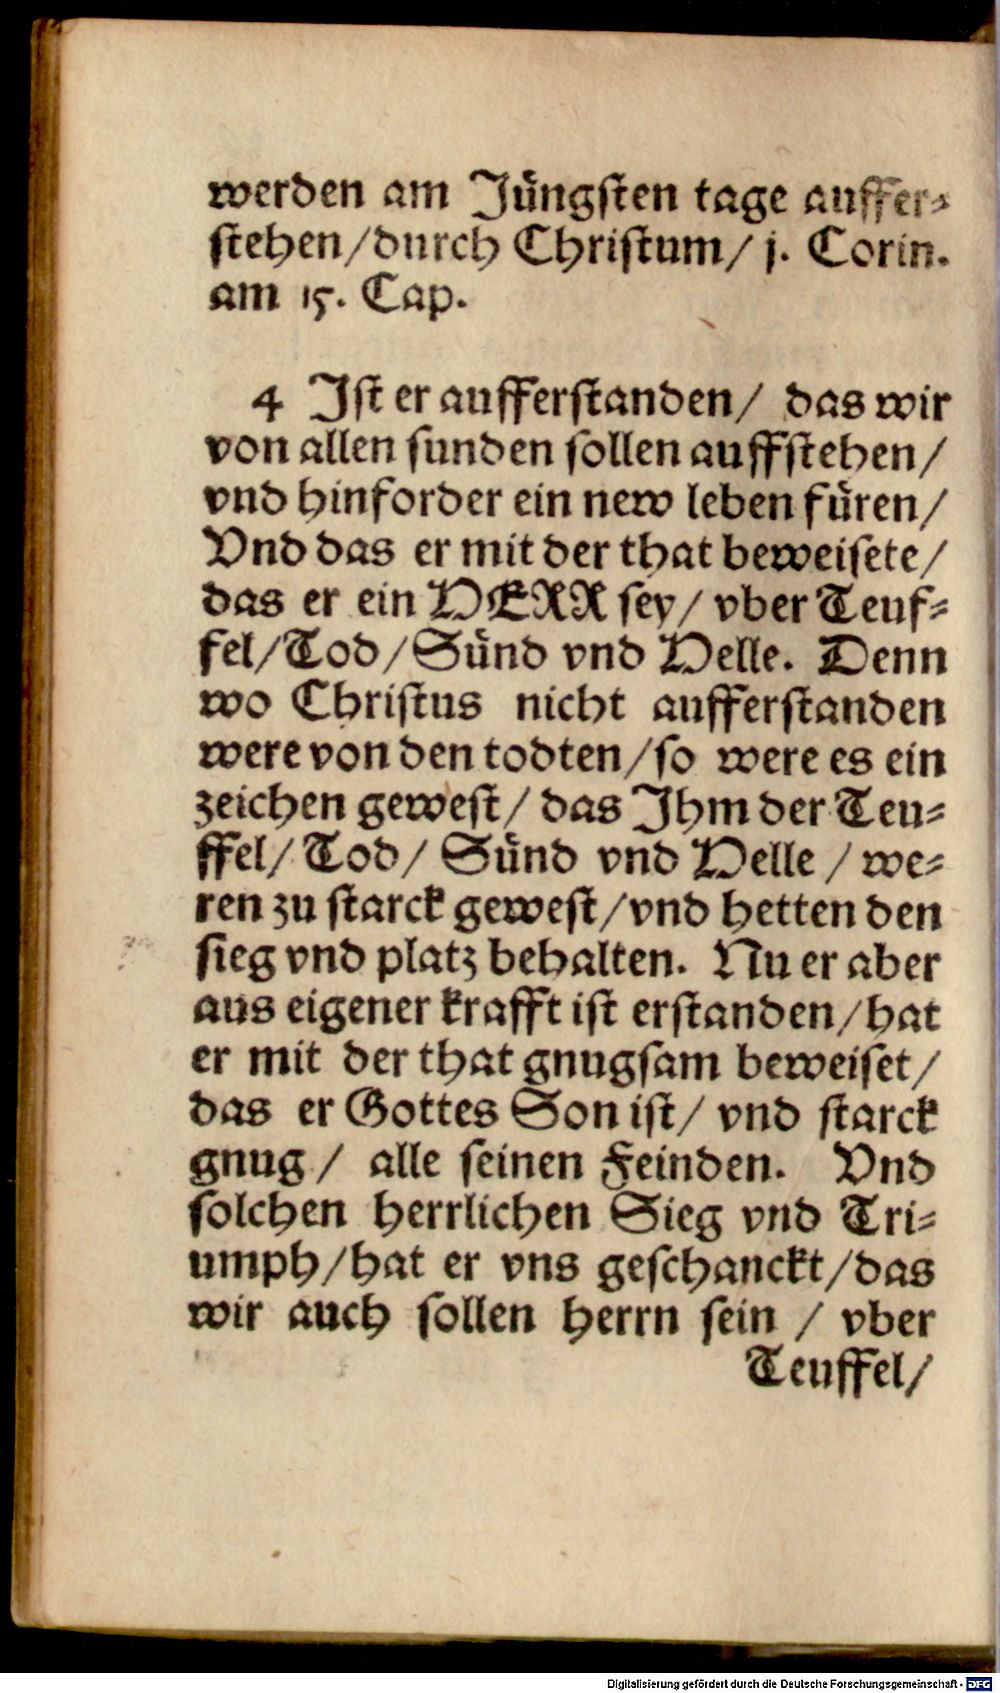 werden am Jüngsten tage auffer⸗
stehen/durch Christum/ j. Corin.
am 15. Cap.
4 Ist er aufferstanden/ das wir
von allen sunden sollen auffstehen/
vnd hinforder ein new leben füren/
Vnd das er mit der that beweisete/
das er ein HERR sey/ vber Teuf⸗
fel/Tod/Sünd vnd Helle. Denn
wo Christus nicht aufferstanden
were von den todten/so were es ein
zeichen gewest/ das Ihm der Teu⸗
ffel/ Tod/ Sünd vnd Helle / we⸗
ren zu starck gewest/vnd hetten den
sieg vnd platz behalten. Nu er aber
aus eigener krafft ist erstanden/hat
er mit der that gnugsam beweiset/
das er Gottes Son ist/ vnd starck
gnug / alle seinen Feinden. Vnd
solchen herrlichen Sieg vnd Tri⸗
umph/hat er vns geschanckt/das
wir auch sollen herrn sein / vber
Teuffel/
Digitalisierung gefördert durch die Deutsche Forschungsgemeinschaft - DFG